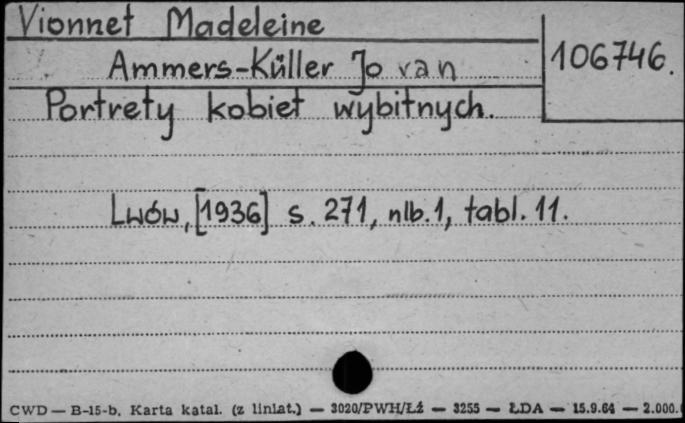 Vionnet Madeleine
Ammers-Küller Jo van
106746.
Portrety kobiet wybitnych.
Lwów, [1936] s. 271, nlb. 1, tabl. 11.
CWD — B-15-b. Karta katal. (z liniat.) — 3020/PWH/Łź — 3255 — ŁDA — 15.9.64 — 2.000.